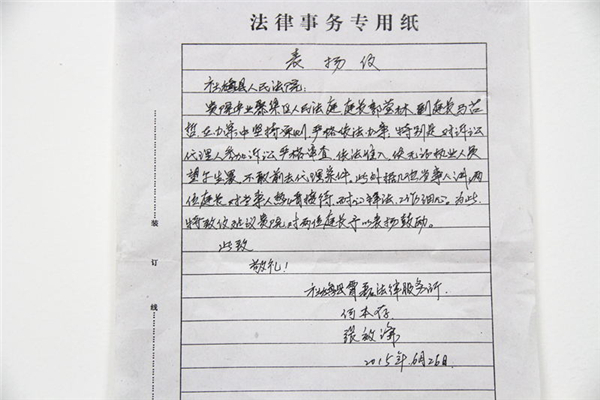 法律事务专用纸
表扬信
社旗县人民法院:
贵院 产业聚集区人民法庭 庭长郭营林 副庭长马
哲 在办案中坚持原则 严格依法办案, 特别是对诉讼
代理人参加诉讼 严格审查, 依法准入, 使无证执业人员
望而生畏, 不敢前去代理案件, 此外据几位当事人讲, 两
位庭长, 对当事人热情接待, 对心释法, 工作细心。为此
特致信建议贵院 对两位庭长予以表扬鼓励。
此致
敬礼!
社旗县 法律服务所
何本存
张敏
2015年6月26日
装
订
线